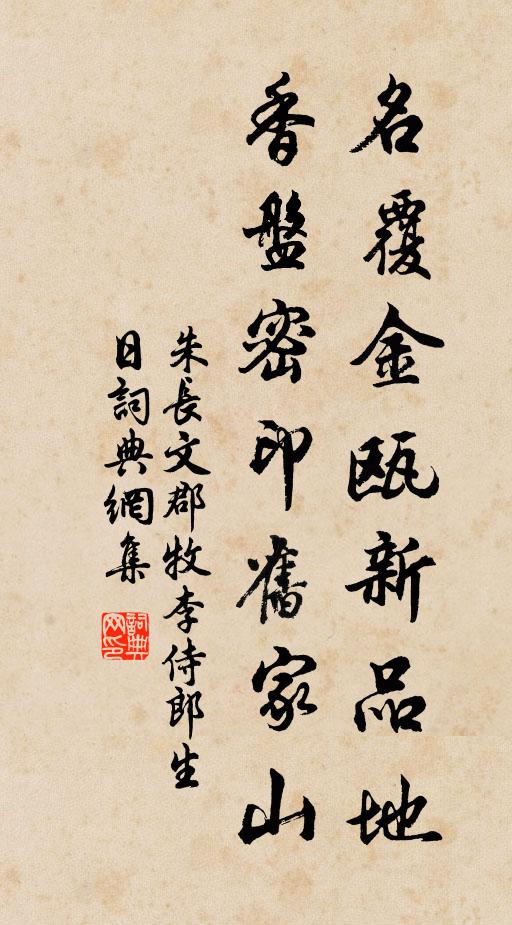 名覆金甌新品地
香盤密印舊家山
朱長文郡牧李侍郎生
日詞典網集
詞典网印